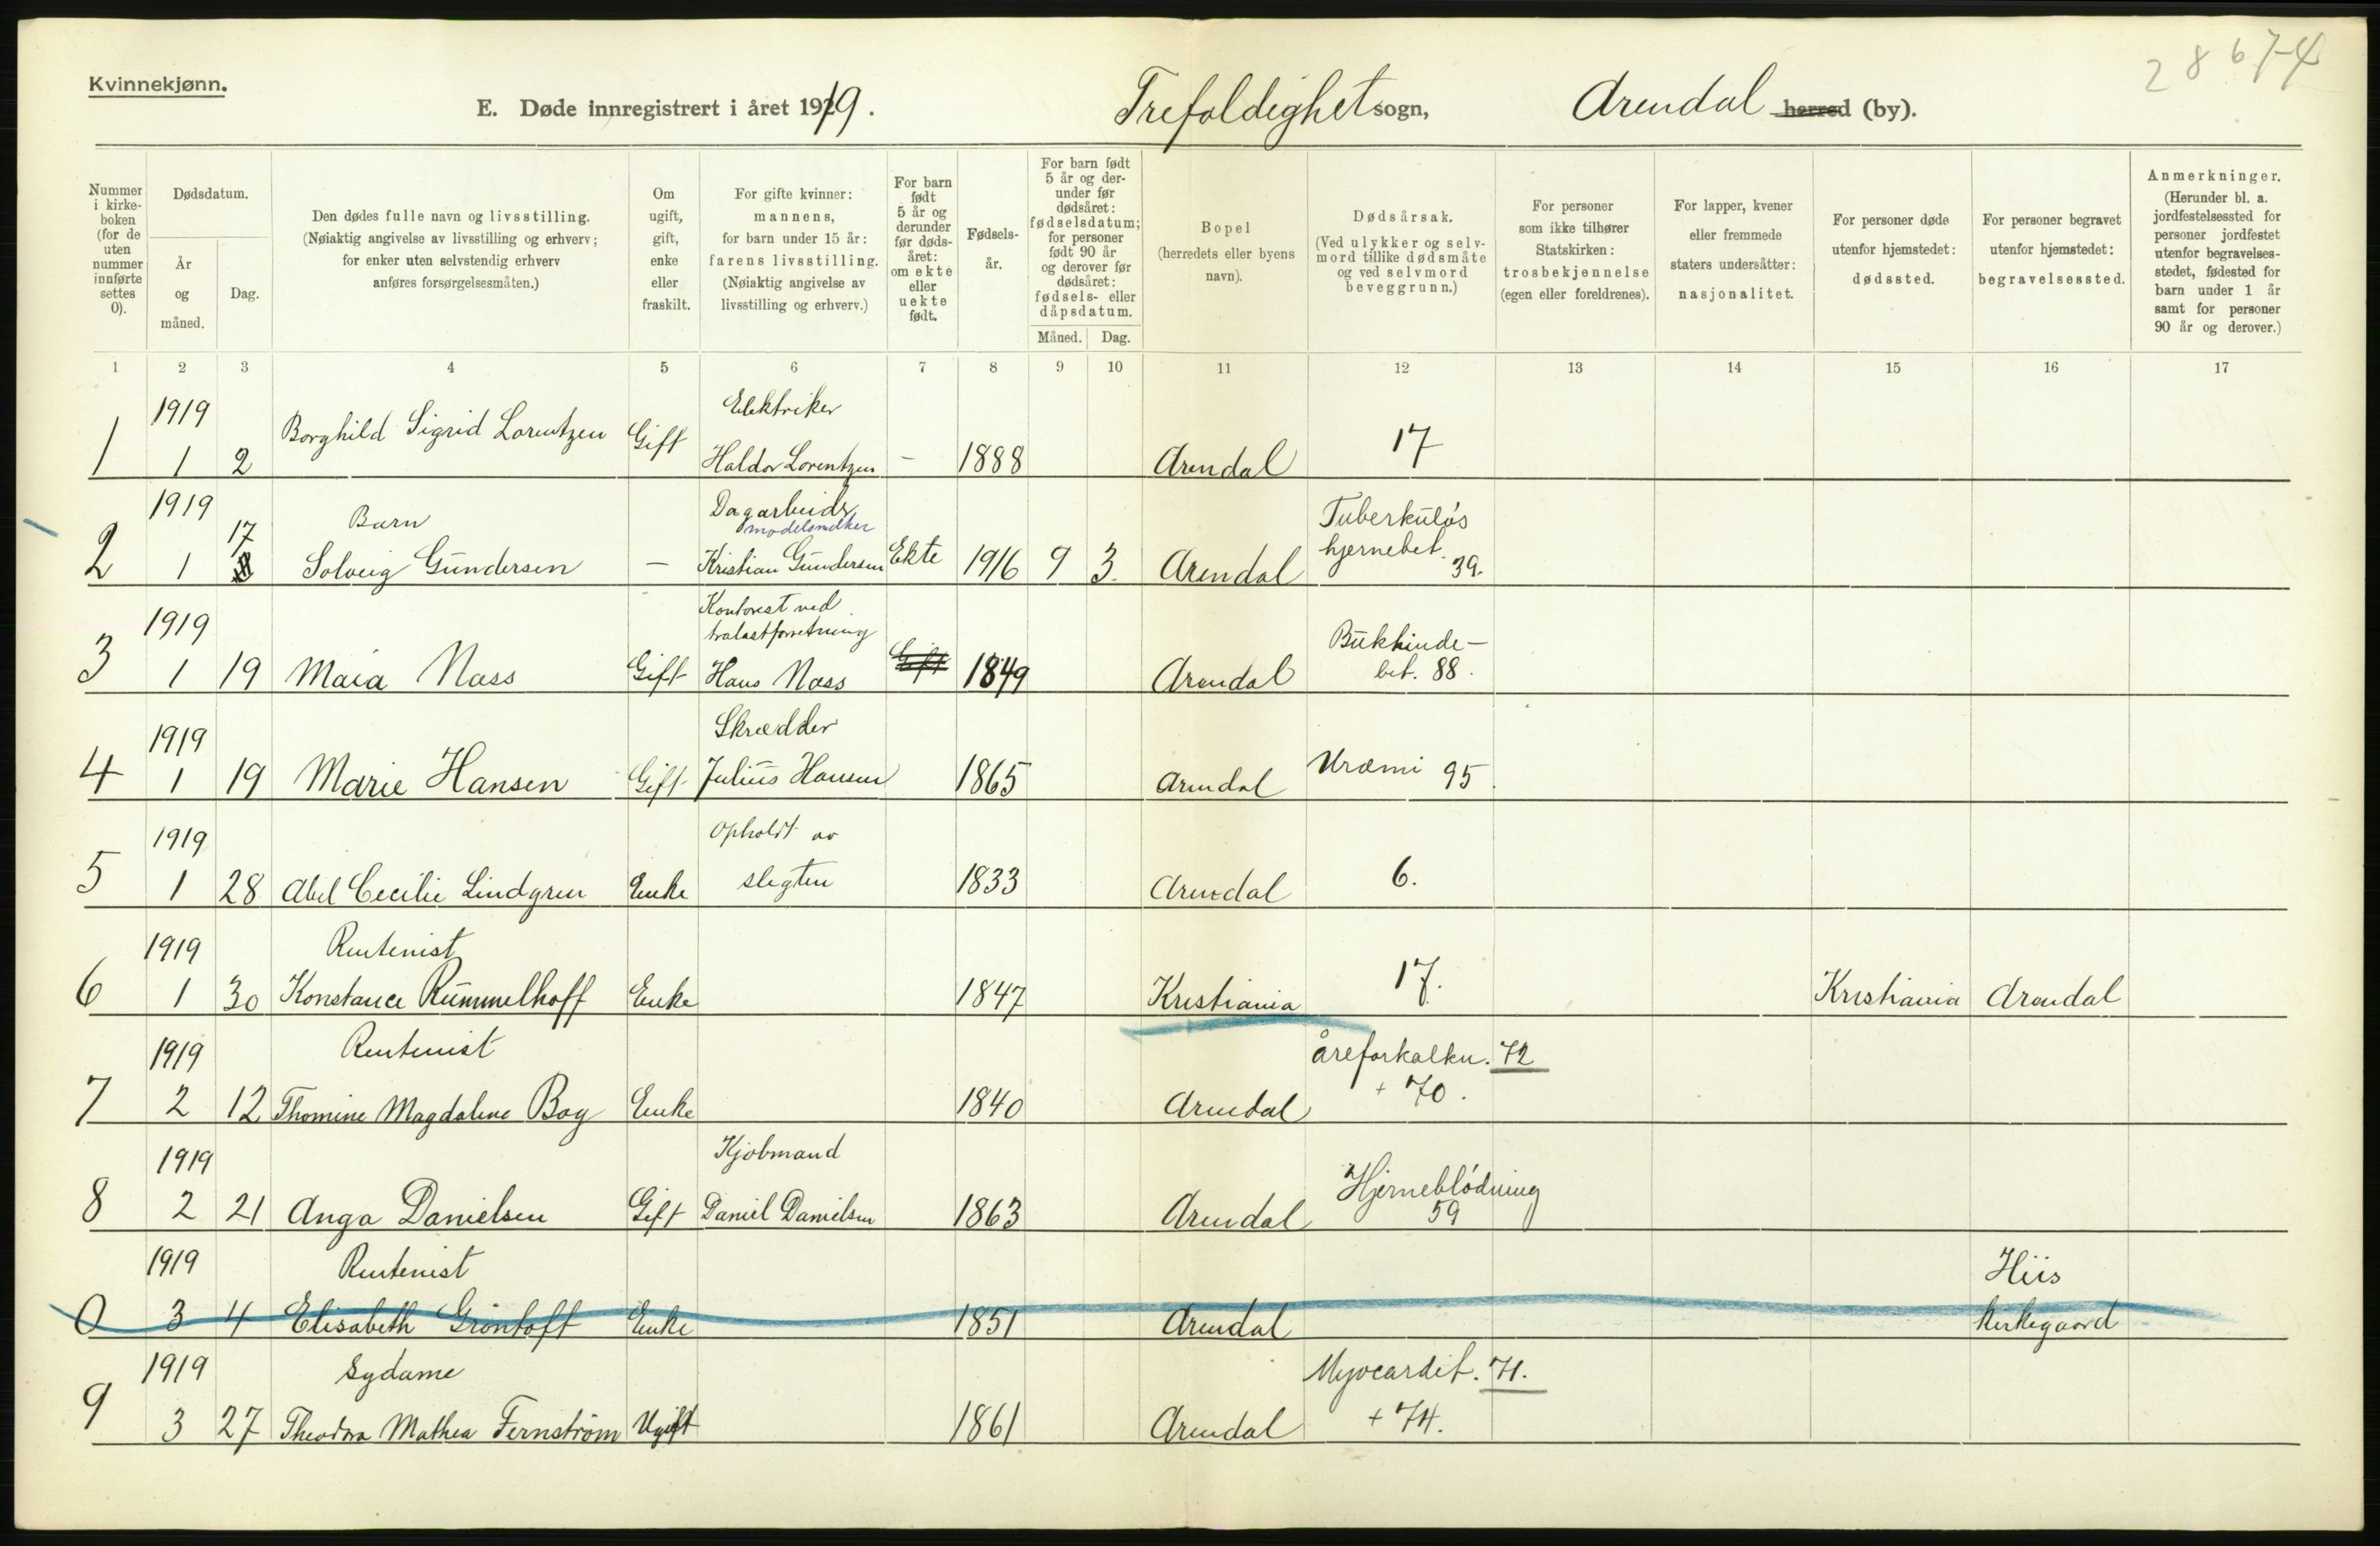 2 8 6 74
Kvinnekjønn.
E. Døde innregistrert i året 1919.
Trefoldighet sogn,
Arendal herred (by).
Nummer i kirkeboken (for de uten nummer innførte settes 0).
Dødsdatum.
År og måned.
Dag.
Den dødes fulle navn og livsstilling.
(Nøiaktig angivelse av livsstilling og erhverv;
for enker uten selvstendig erhverv
anføres forsørgelsesmåten.)
Om ugift, gift, enke eller fraskilt.
For gifte kvinner:
mannens,
for barn under 15 år:
farens livsstilling.
(Nøiaktig angivelse av
livsstilling og erhverv.)
For barn født 5 år og derunder før døds-året: om ekte eller uekte født.
Fødsels-år.
For barn født 5 år og der-under før dødsåret: fødselsdatum; for personer født 90 år og derover før dødsåret: fødsels- eller dåpsdatum.
Måned.
Dag.
Bopel
(herredets eller byens
navn).
Dødsårsak.
(Ved ulykker og selv-
mord tillike dødsmåte
og ved selvmord
beveggrunn.)
For personer
som ikke tilhører
Statskirken:
trosbekjennelse
(egen eller foreldrenes).
For lapper, kvener
eller fremmede
staters undersåtter:
nasjonalitet.
For personer døde
utenfor hjemstedet:
dødssted.
For personer begravet
utenfor hjemstedet:
begravelsessted.
Anmerkninger.
(Herunder bl. a.
jordfestelsessted for
personer jordfestet
utenfor begravelses-
stedet, fødested for
barn under 1 år
samt for personer
90 år og derover.)
1 2 3 4 5 6 7 8 9 10 11 12 13 14 15 16 17
1919 Elektriker
1 1 2 Borghild Sigrid Lorentzen Gift Haldor Lorentzen – 1888 Arendal 17
1919 17 Barn Dagarbeider modelsnekker Tuberkuløs
2 1 Solveig Gundersen – Kristian Gundersen Ekte 1916 9 3. Arendal hjernebet. 39.
1919 Kontorist ved trælastforretning Bukhinde-
3 1 19 Maia Næss Gift Hans Næss Gift 1849 Arendal bet. 88.
1919 Skrædder
4 1 19 Marie Hansen Gift Julius Hansen 1865 Arendal Uræmi 95.
1919 Opholdt av
5 1 28 Abel Cecilie Lindgren Enke slegten 1833 Arendal 6.
1919 Rentenist
6 1 30 Konstance Rummelhoff Enke 1847 Kristiania 17. Kristiania Arendal
1919 Rentenist åreforkalkn. 72
7 2 12 Thomine Magdalene Boy Enke 1840 Arendal + 70.
1919 Kjøbmand Hjerneblödning
8 2 21 Anga Danielsen Gift Daniel Danielsen 1863 Arendal 59
1919 Rentenist Hiis
0 3 4 Elisabeth Grøntoft Enke 1851 Arendal kirkegaard
1919 Sydame Myocardit. 71.
9 3 27 Theodora Mathea Fernstrøm Ugift 1861 Arendal + 74.